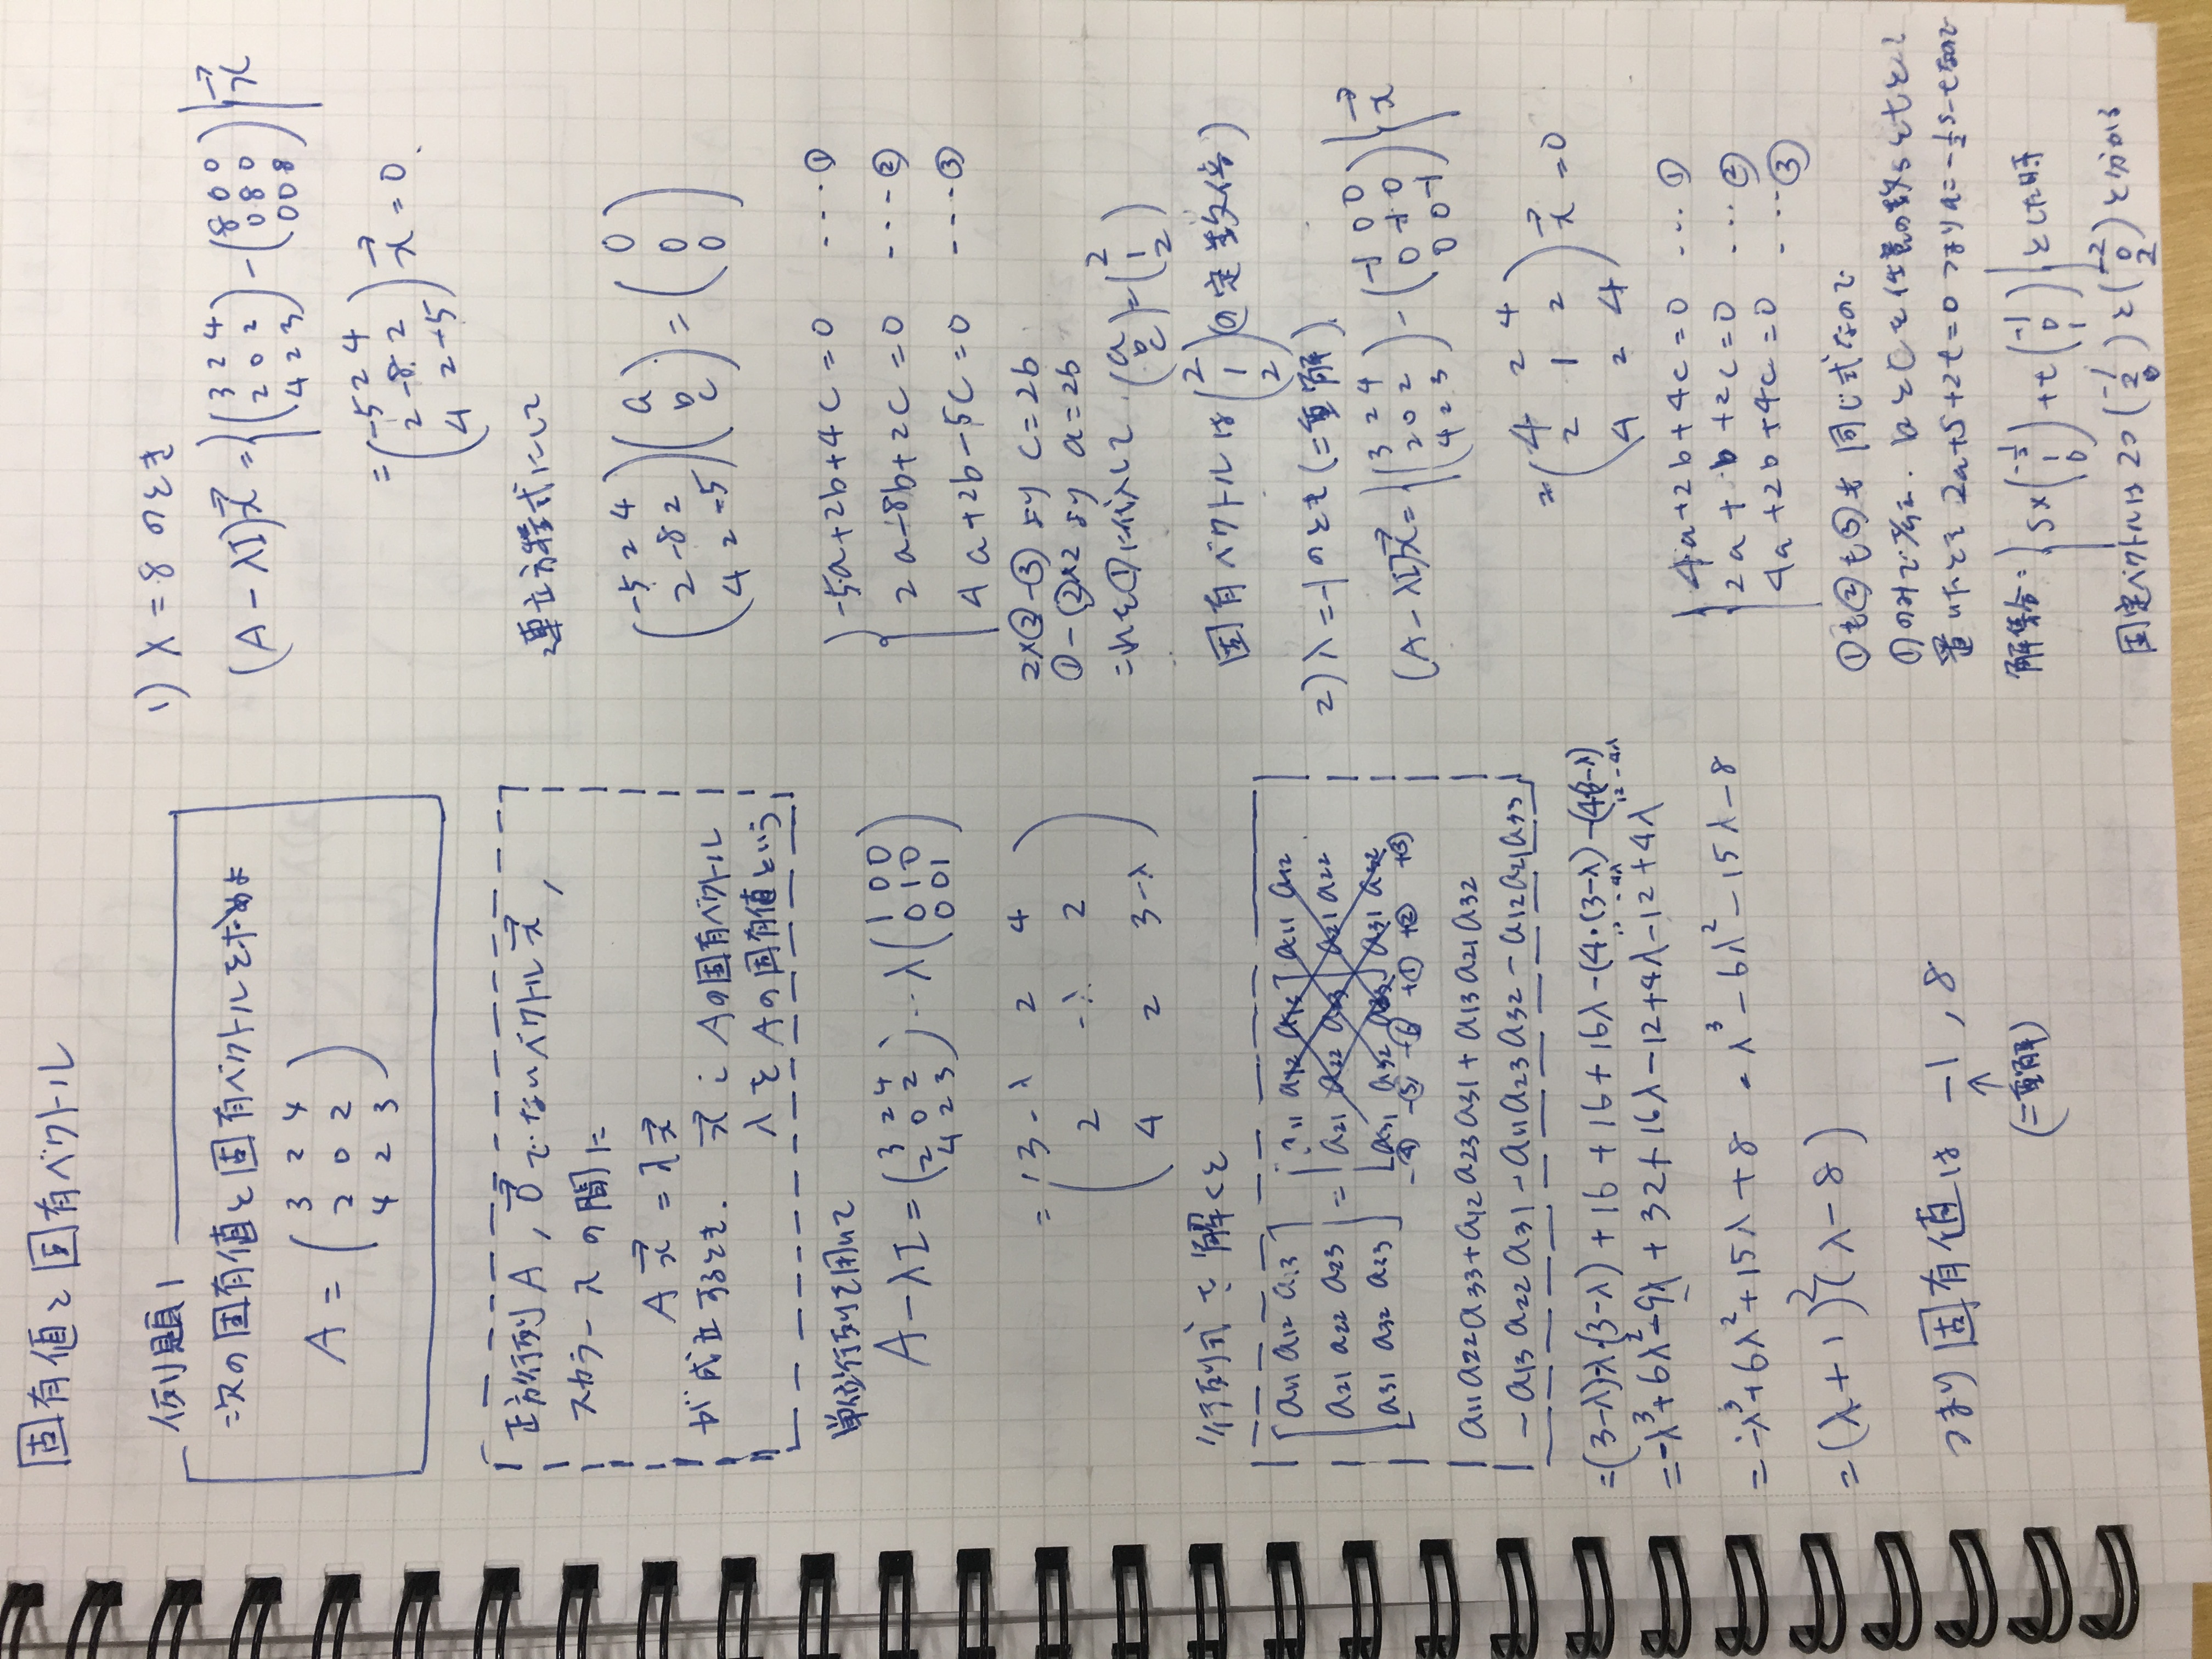 固有値と固有ベクトル
例題1
次の固有値と固有ベクトルを求めよ
A = ( 3 2 4
2 0 2
4 2 3 )
正方行列A, 0→でないベクトルx→,
スカラーλの間に
Ax→ = λx→
が成立するとき. x→を Aの固有ベクトル
λを Aの固有値という
単位行列を用いて
A-λI = ( 3 2 4
2 0 2
4 2 3 ) - λ ( 1 0 0
0 1 0
0 0 1 )
= ( 3-λ 2 4
2 -λ 2
4 2 3-λ )
行列式を解くと
[ a11 a12 a13
a21 a22 a23
a31 a32 a23 ] = [ a11 a12 a13 ] a11 a12
a21 a22 a23 a21 a22
a31 a32 a33 a31 a32
-④ -⑤ -⑥ +① +② +③
a11a22a33+a12a23a31+a13a21a32
-a13a22a31-a11a23a32-a12a21a33
=(3-λ)・-λ・(3-λ)+16+16+16λ-(4・(3-λ)-(4(3-λ)
12-4λ 12-4λ
=-λ³+6λ²-9λ+32+16λ-12+4λ-12+4λ
=-λ³+6λ²+15λ+8 = λ³-6λ²-15λ-8
=(λ+1)²(λ-8)
つまり固有値は -1, 8
↑
(二重解)
1) λ=8のとき
(A-λI)x→ = { ( 3 2 4
2 0 2
4 2 3 ) - ( 8 0 0
0 8 0
0 0 8 ) } x→
= ( -5 2 4
2 -8 2
4 2 -5 ) x→ = 0.
連立方程式にして
( -5 2 4
2 -8 2
4 2 -5 ) ( a
b
c ) = ( 0
0
0 )
-5a+2b+4c=0 ---①
2a-8b+2c=0 ---②
4a+2b-5c=0 ---③
2×②-③より c=2b
①-②×2より a=2b
これを①に代入して ( a
b
c ) = ( 2
1
2 )
固有ベクトルは ( 2
1
2 ) (の定数倍)
2) λ=-1のとき(二重解)
(A-λI)x→ = { ( 3 2 4
2 0 2
4 2 3 ) - ( -1 0 0
0 -1 0
0 0 -1 ) } x→
= ( 4 2 4
2 1 2
4 2 4 ) x→ = 0
4a+2b+4c=0 ...①
2a+b+2c=0 ...②
4a+2b+4c=0 ...③
①も②も③も同じ式なので
①のみで考え. bとcを任意の数sとtとして
置いたとき 2a+s+2t=0 つまりa=-1/2s-tなので
解集合: { s×( -1/2
1
0 ) + t( -1
0
1 ) } とした時
固定ベクトルは2つ ( -1
2
0 ) と ( -2
0
2 ) と分かる